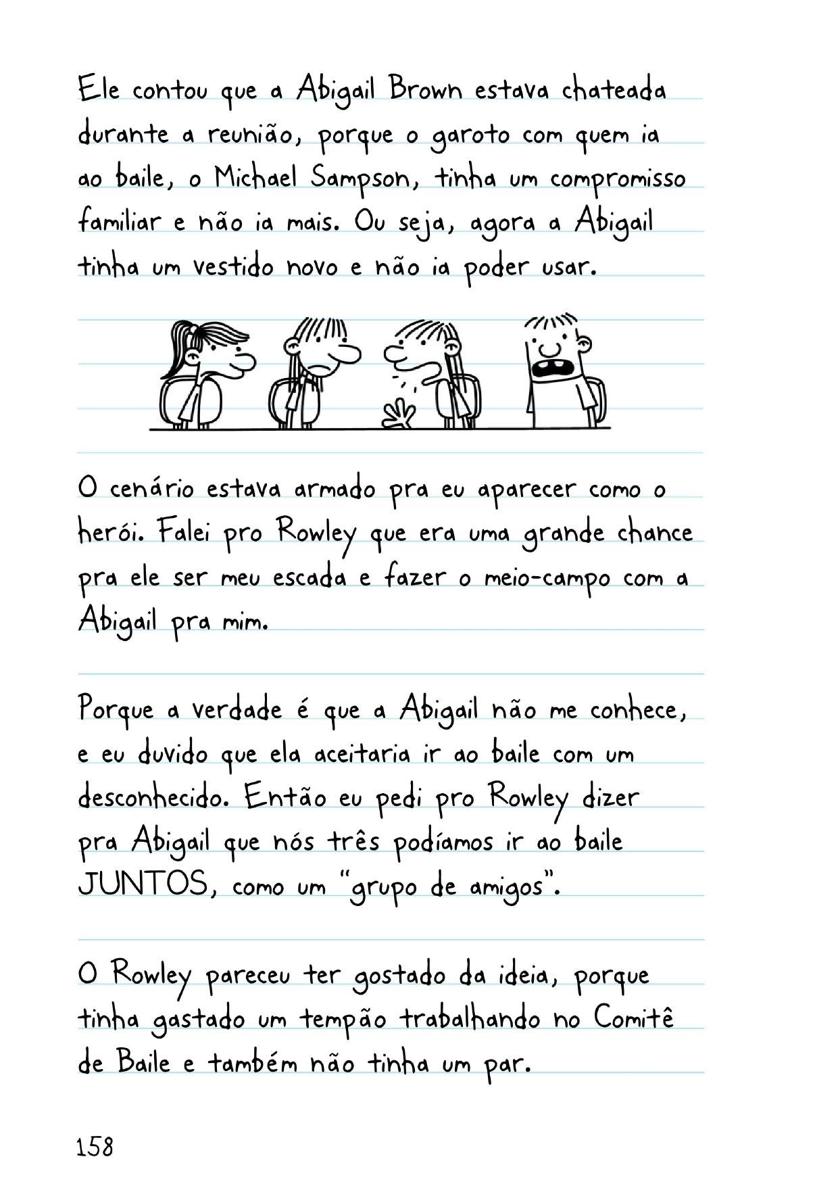 Ele contou que a Abigail Brown estava chateada
durante a reunião, porque o garoto com quem ia
ao baile, o Michael Sampson, tinha um compromisso
familiar e não ia mais. Ou seja, agora a Abigail
tinha um vestido novo e não ia poder usar.
O cenário estava armado pra eu aparecer como o
herói. Falei pro Rowley que era uma grande chance
pra ele ser meu escada e fazer o meio-campo com a
Abigail pra mim.
Porque a verdade é que a Abigail não me conhece,
e eu duvido que ela aceitaria ir ao baile com um
desconhecido. Então eu pedi pro Rowley dizer
pra Abigail que nós três podíamos ir ao baile
JUNTOS, como um “grupo de amigos”.
O Rowley pareceu ter gostado da ideia, porque
tinha gastado um tempão trabalhando no Comitê
de Baile e também não tinha um par.
158